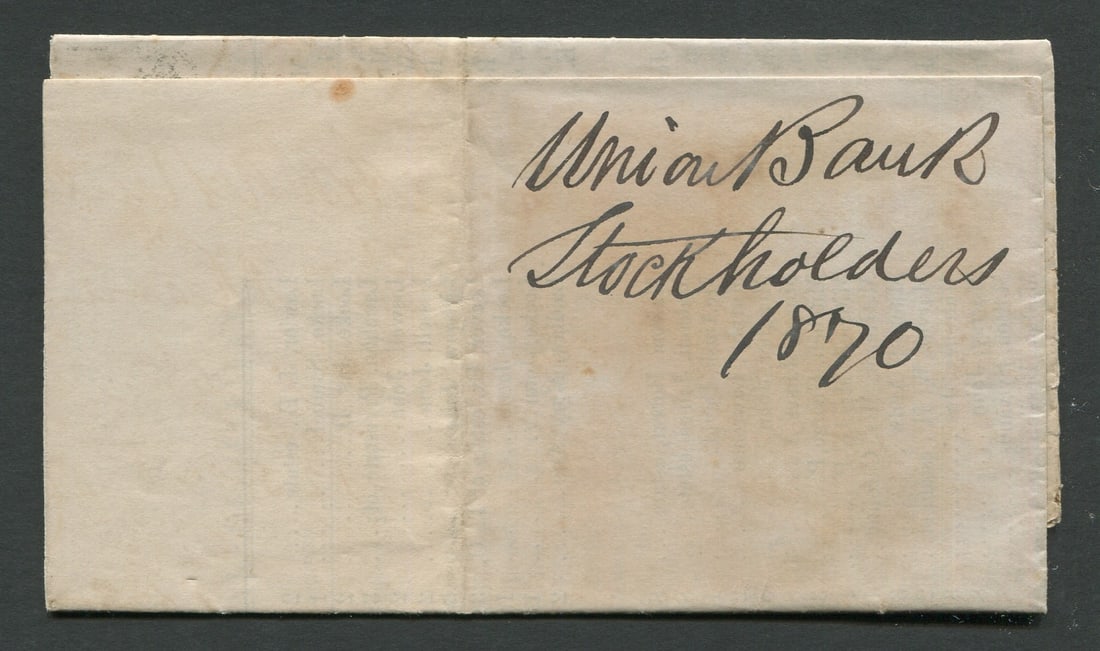 Union Bank
Stockholders
1870